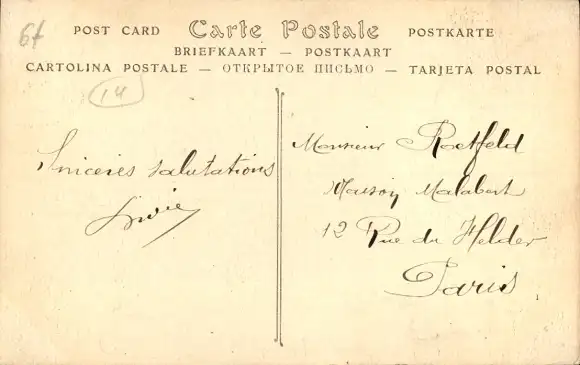 6f
POST CARD Carte Postale POSTKARTE
BRIEFKAART — POSTKAART
CARTOLINA POSTALE — ОТКРЫТОЕ ПИСЬМО — TARJETA POSTAL
14
Sincères salutations
Monsieur Roetfeld
Maison Malabert
12 Rue du Helder
Paris